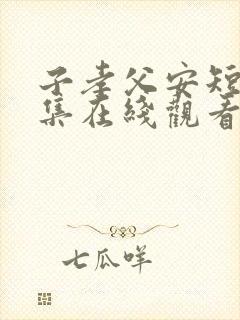 子孝父安短
集在綫觀看
七瓜咩